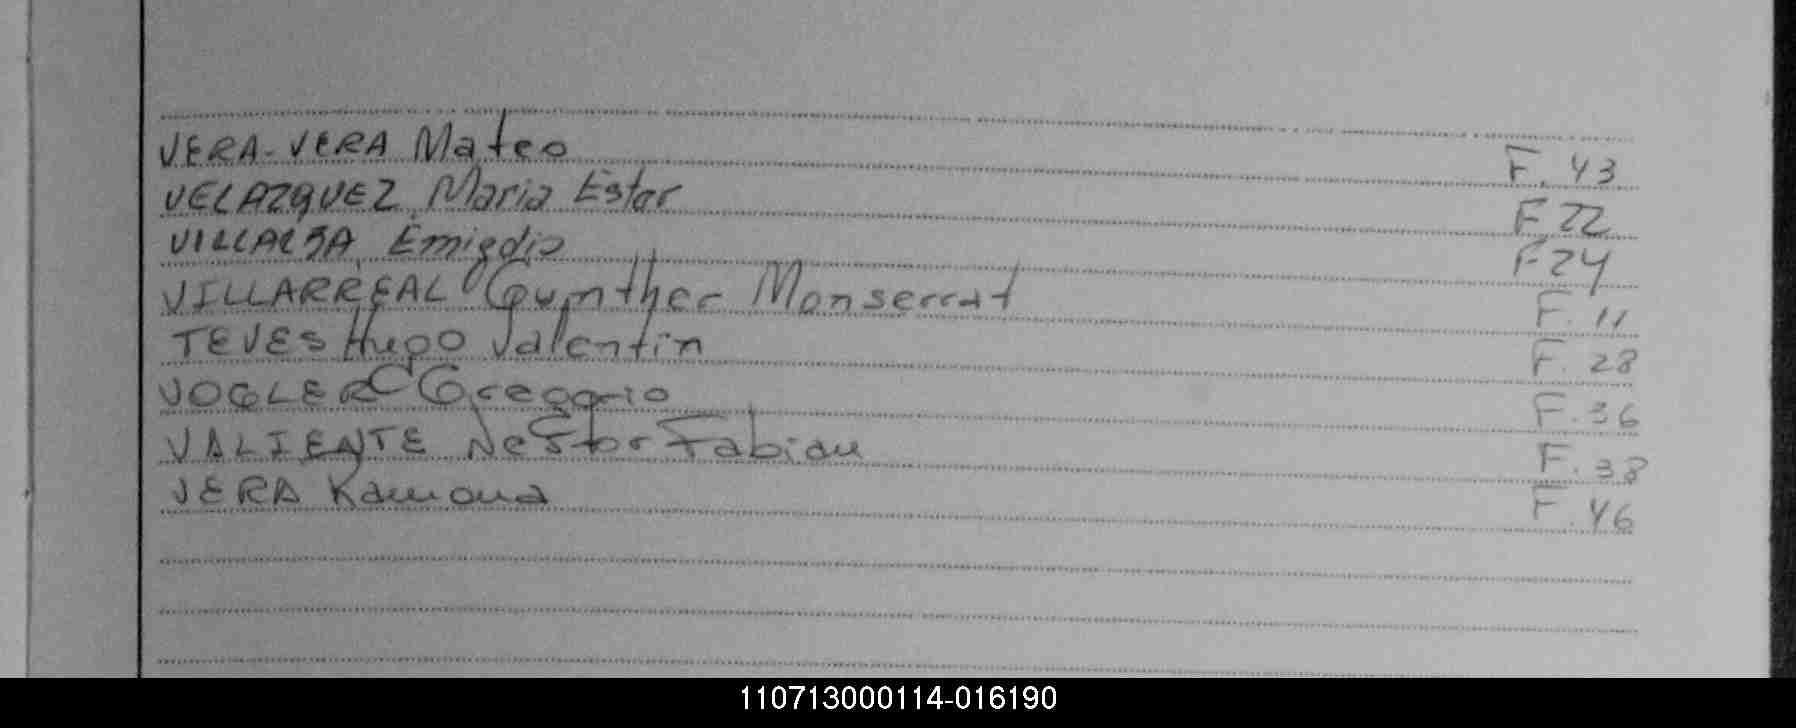 VERA-VERA Mateo F. 43
VELAZQUEZ Maria Ester F 22
VILLALBA Emigdio F 24
VILLARREAL Gunther Monserrat F. 11
TEVES Hugo Valentin F. 28
VOGLER Gregorio F. 36
VALIENTE Nestor Fabian F. 38
VERA Ramona F. 46
110713000114-016190